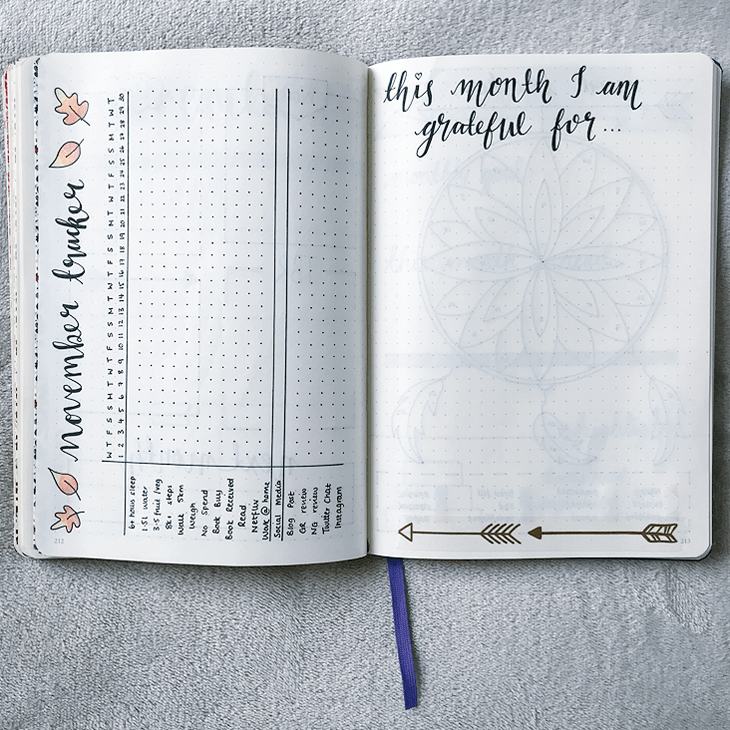 november tracker
W T F S S M T W T F S S M T W T F S S M T W T F S S M T W T
1 2 3 4 5 6 7 8 9 10 11 12 13 14 15 16 17 18 19 20 21 22 23 24 25 26 27 28 29 30
6+ hours sleep
1.5L water
3-5 fruit/veg
8k+ steps
Walk 5km
Weigh
No Spend
Book Buy
Book Received
Read
Netflix
Work @ home
Social Media
Blog Post
GR review
NG review
Twitter Chat
Instagram
212
this month I am
grateful for...
213